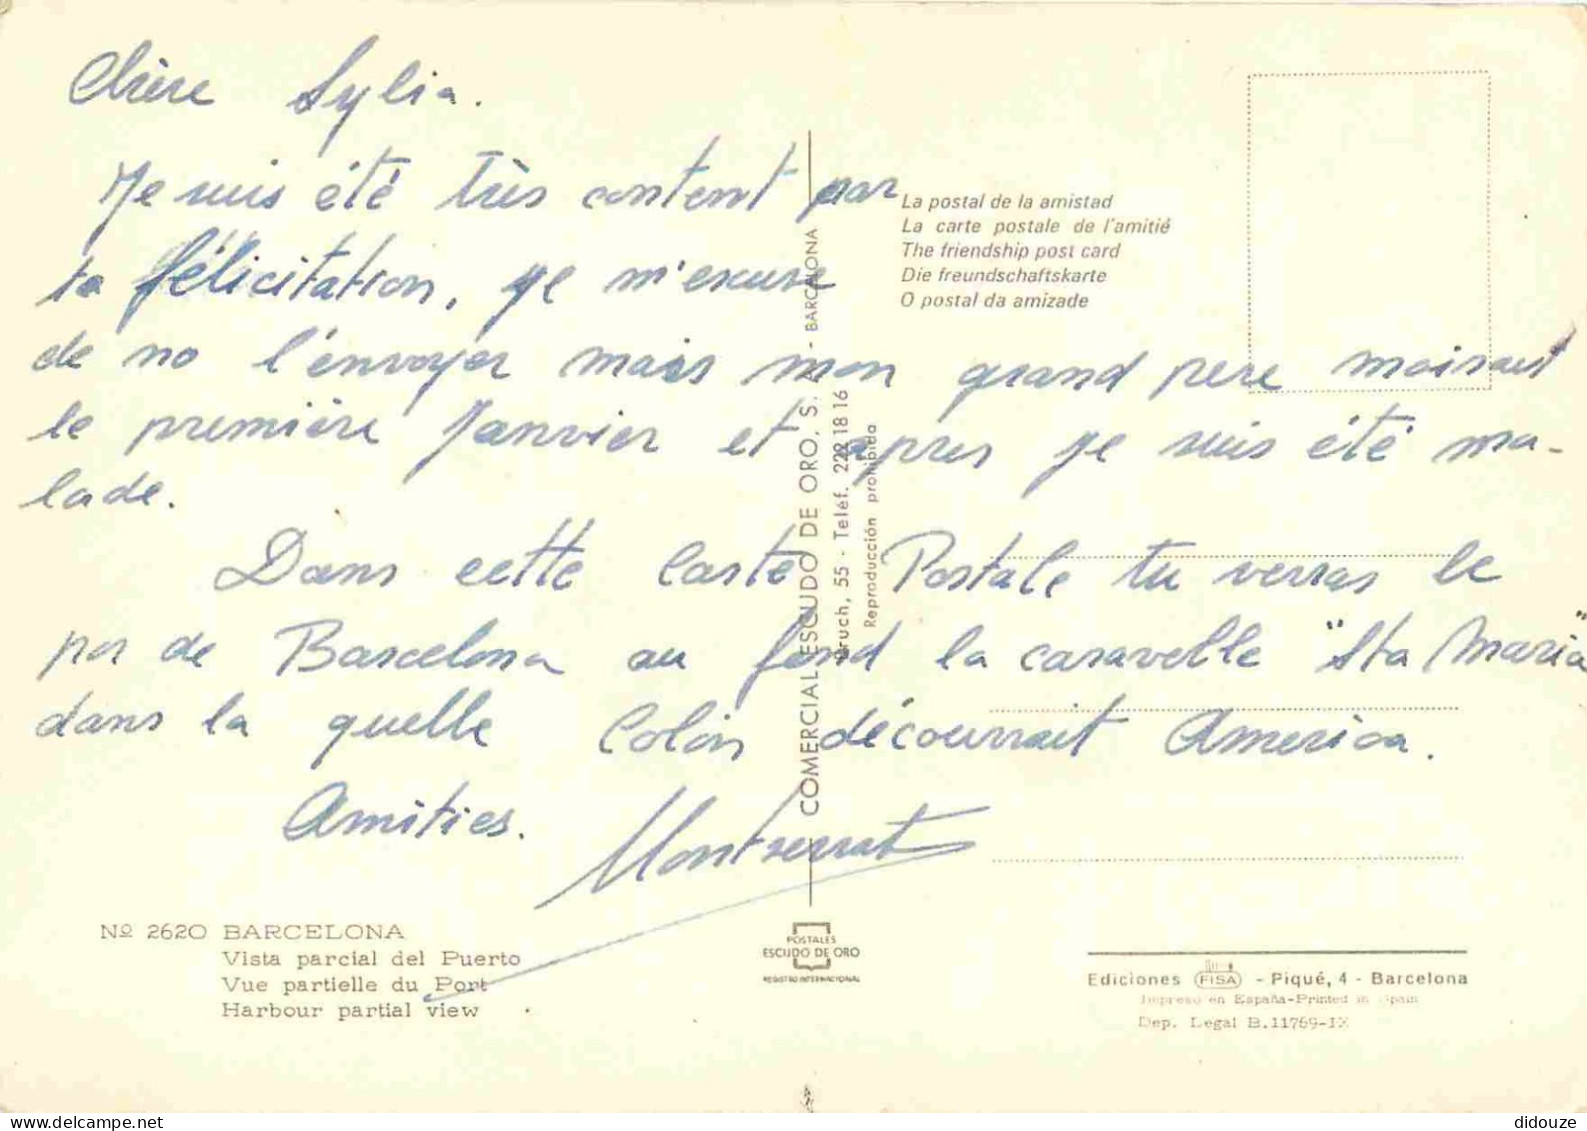 Chère Sylia.
Je suis été très content par
ta félicitation, je m'excuse
de no l'envoyer mais mon grand pere moisaut
le première Janvier et apres je suis été ma-
lade.
Dans cette Carte Postale tu verras le
por de Barcelona au fond la caravelle "Sta Maria"
dans la quelle Colón découvrait America.
Amities.
Montserrat
La postal de la amistad
La carte postale de l'amitié
The friendship post card
Die freundschaftskarte
O postal da amizade
COMERCIAL ESCUDO DE ORO, S. A. - BARCELONA
Bruch, 55 - Teléf. 222 18 16
Reproducción prohibida
Nº 2620 BARCELONA
Vista parcial del Puerto
Vue partielle du Port
Harbour partial view
POSTALES
ESCUDO DE ORO
REGISTRO INTERNACIONAL
Ediciones FISA - Piqué, 4 - Barcelona
Impreso en España-Printed in Spain
Dep. Legal B.11769-IX
didouze